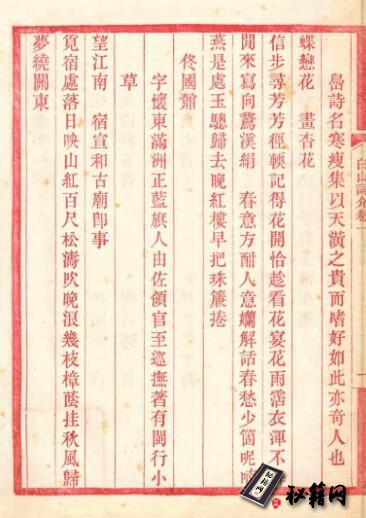 嵒詩名寒瘦集以天潢之貴而嗜好如此亦奇人也
蝶戀花　畫杏花
信步尋芳芳徑輭記得花開恰趁看花宴花雨霑衣渾不
閒來寫向鵞溪絹　春意方酣人意嬾解話春愁少箇呢喃
燕是處玉驄歸去晚紅樓早把珠簾捲
佟國鼐
字懷東滿洲正藍旗人由佐領官至巡撫著有閩行小
草
望江南　宿宣和古廟卽事
覓宿處落日映山紅百尺松濤吹晚浪幾枝樟蔭挂秋風歸
夢繞關東
白山詞介卷一
秘籍网